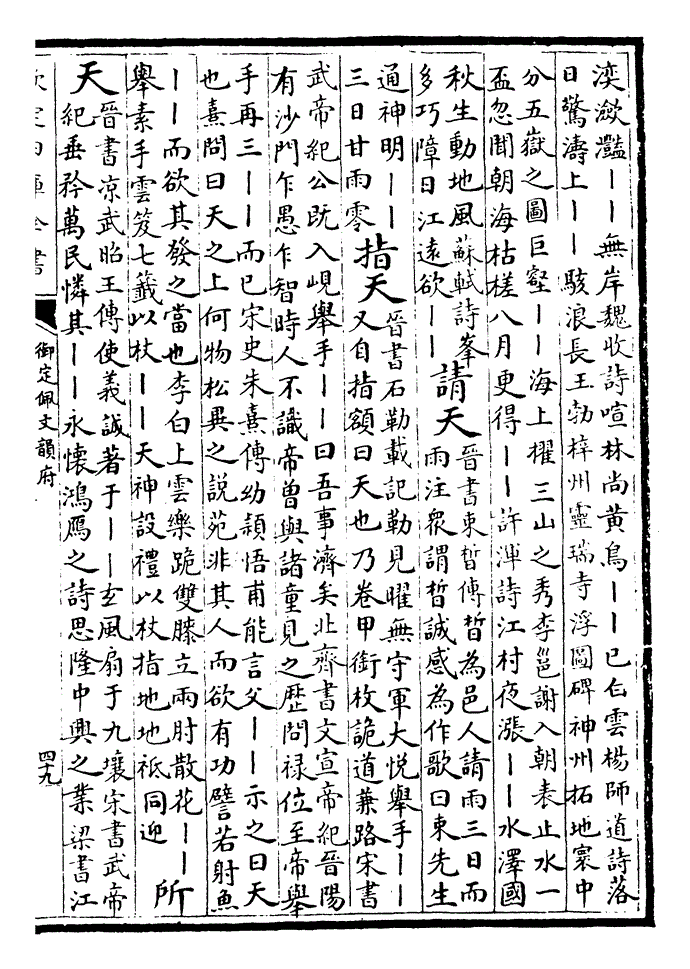 湙瀲灩｜｜無岸魏收詩喧林尚黃鳥｜｜已白雲楊師道詩落
日驚濤上｜｜駭浪長王勃梓州靈瑞寺浮圖碑神州拓地寰中
分五嶽之圖巨壑｜｜海上櫂三山之秀李邕謝入朝表止水一
盃忽聞朝海枯槎八月更得｜｜許渾詩江村夜漲｜｜水澤國
秋生動地風蘇軾詩峯
多巧障日江遠欲｜｜
請天
晉書束晳傳晳為邑人請雨三日而
雨注衆謂晳誠感為作歌曰束先生
通神明｜｜
三日甘雨零
指天
晉書石勒載記勒見曜無守軍大悅舉手｜｜
又自指額曰天也乃卷甲銜枚詭道兼路宋書
武帝紀公既入峴舉手｜｜曰吾事濟矣北齊書文宣帝紀晉陽
有沙門乍愚乍智時人不識帝曾與諸童見之歷問祿位至帝舉
手再三｜｜而已宋史朱熹傳幼穎悟甫能言父｜｜示之曰天
也熹問曰天之上何物松異之說苑非其人而欲有功譬若射魚
｜｜而欲其發之當也李白上雲樂跪雙膝立兩肘散花｜｜
舉素手雲笈七籤以杖｜｜天神設禮以杖指地地祇同迎
所
天
晉書凉武昭王傳使義誠著于｜｜玄風扇于九壤宋書武帝
紀垂矜萬民憐其｜｜永懷鴻鴈之詩思隆中興之業梁書江
欽定四庫全書
御定佩文韻府
四十九